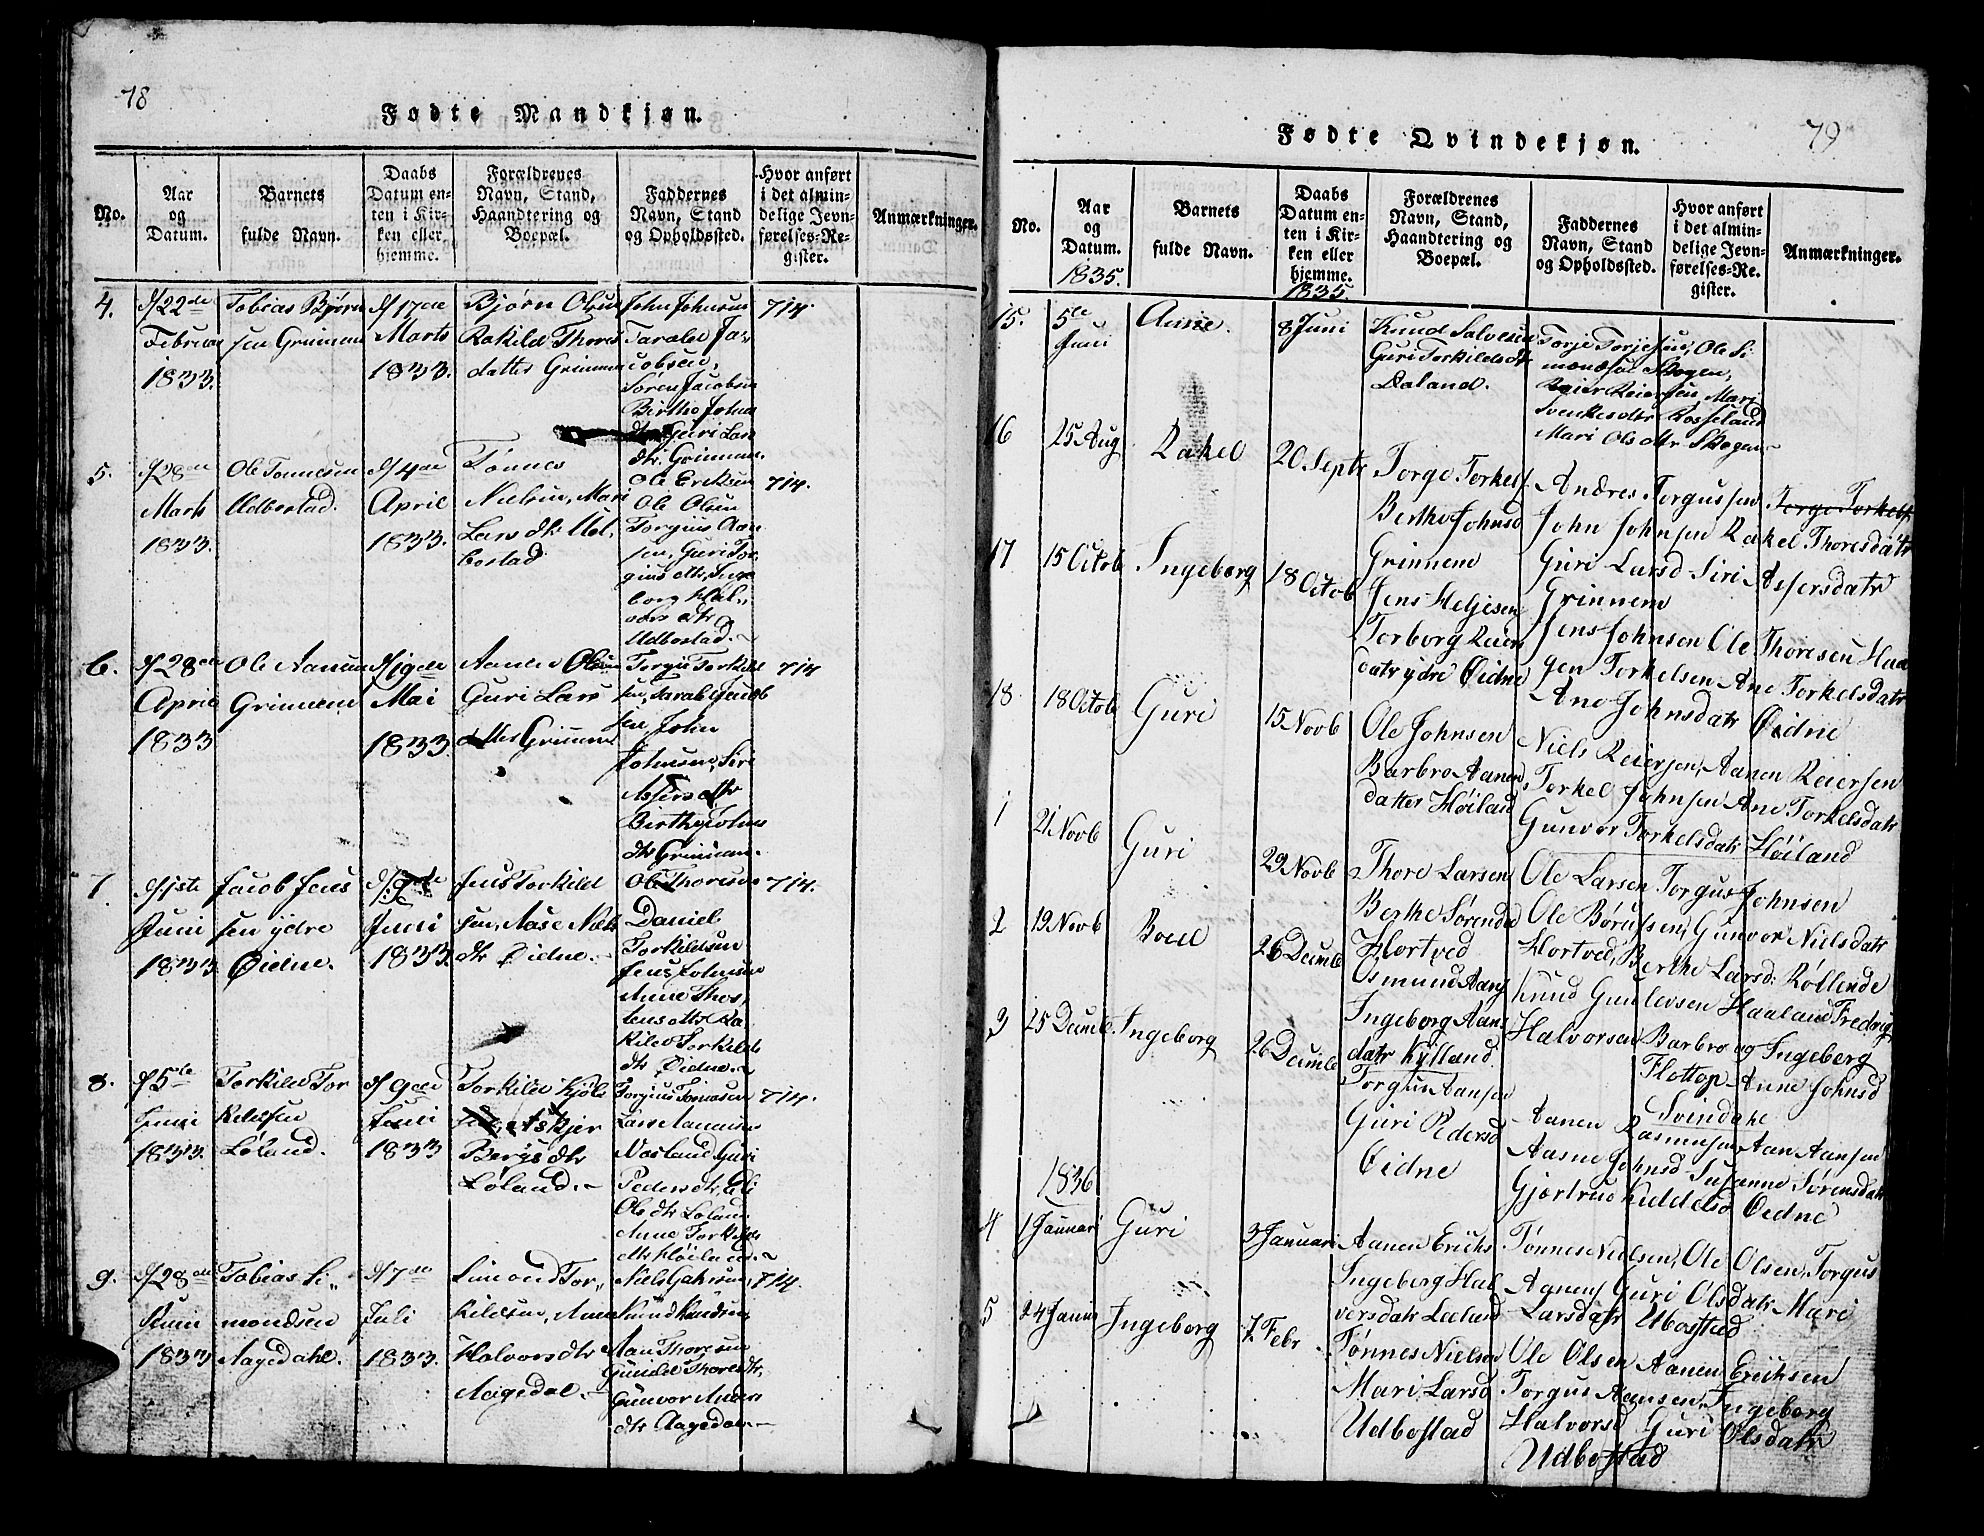 78
Fødte Mandkjøn.
No.
Aar og Datum.
Barnets fulde Navn.
Daabs Datum enten i Kirken eller hjemme.
Forældrenes Navn, Stand, Haandtering og Boepæl.
Faddernes Navn, Stand og Opholdssted.
Hvor anført i det almindelige Jevnførelses-Register.
Anmærkninger.
4.
d/22de
Februar
1833.
Tobias Bjørn
sen Grinnem
d/17de
Marts
1833.
Bjørn Olsen
Rakild Thores
datter Grinnem
John Johnsen
Tarald Ja-
cobsen,
Søren Jacobsen
Birthe Johns
dtr Guri Lars
dtr. Grinnem.
714.
5.
d/28de
Marts
1833.
Ole Tønnesen
Udbostad.
d/4de
April
1833.
Tønnes
Nielsen, Mari
Lars dtr. Ud-
bostad
Ole Eriksen
Ole Olsen
Torgius Aan
sen, Guri Tor
gius dtr, Inge
borg Hal-
vors dtr
Udbostad.
714.
6.
d/28de
April
1833
Ole Aanensen
Grinnem
d/19de
Mai
1833.
Aanen Olsen
Guri Lars
datter Grinnem
Torgius Torkild
sen, Tarald Jacob
sen, John
Johnsen, Siri
Assers dtr
Birthe Johns
dtr Grinnem.
714
7.
d/1ste
Juni
1833.
Jacob Jens
sen ydre
Øidne.
d/9de
Juni
1833.
Jens Torkild
sen, Aase
dtr Øidne.
Ole Thoresen
Daniel
Torkildsen
Jens Johnsen
Anne Thor
Ra
kild Torkilds
dtr Øidne.
714.
8.
d/5te
Juni
1833.
Torkild Tor
kildsen
Løland.
d/9de
Juni
1833
Torkild Kjøls
Askjer
Berges dtr
Løland.
Torgius Tomasen
Lars Aanensen
Guri
Peders dtr, Eli
Ols dtr Løland
Anne Torkilds
dtr Høiland.
714.
9.
d/28de
Juni
1833
Tobias Si-
mondsen
Aagedahl.
d/7de
Juli
1833.
Simond Tor-
kildsen, Anne
Halvors dtr
Aagedal.
Niels
Knud Knudsen,
Aan Thoresen
Gundel Thores dtr,
Gunvor
dtr Aagedal.
714.
79
Fødte Qvindekjøn.
No.
Aar og Datum.
1835.
Barnets fulde Navn.
Daabs Datum enten i Kirken eller hjemme.
1835.
Forældrenes Navn, Stand, Haandtering og Boepæl.
Faddernes Navn, Stand og Opholdssted.
Hvor anført i det almindelige Jevnførelses-Register.
Anmærkninger.
15.
5te
Juni
Anne.
8 Juni
Knud Salvesen
Guri Torkilds dtr
Daland.
Torje Torjesen, Ole Si
mondsen Skogen,
Reier Reiersen, Mari
Svenkes dtr Rosseland
Mari Ols dtr Skogen
16
25 Aug
Rakel
20 Septr
Torge Torkels
Berthe Johnsd
Grinnem
Andres Torgussen Torge Torkels.
John Johnsen Rakel Thoresdatr
Guri Larsd Siri Assersdatr
Grinnem
17
15 Octob
Ingeborg
18 Octob
Jens Heljesen
Torborg Reiers
datr ydre Øidne
Jens Johnsen Ole Thoresen Haa
gen Torkelsen Ane Torkelsdatr
Ane Johnsdatr Øidne
18
18 Octob
Guri
15 Novb
Ole Johnsen
Barbro Aanens
datter Høiland
Niels Reiersen, Aanen Reiersen
Torkel Johnsen Ane Torkelsdatr
Gunvor Torkelsdatr Høiland
1
21 Novb
Guri
29 Novb
Thore Larsen
Berthe Sørensd
Hortved
Ole Larsen Torgus Johnsen
Ole Børufsen, Gunvor Nielsdatr
Hortved, Berthe Larsd: Røllende
2
19 Novb
Boel
26 Decmb
Osmund Aans
Ingeborg Aans
datr Kylland
Knud Gunlevsen Haaland Fredrig
Halvorsen Barbro og Ingeborg
Flottop Anne Johnsd
Svindahl
3
25 Decmb
Ingeborg
26 Decmb
Torgus Aansen
Guri Pedersd
Øidne
Aanen Rasmusen Aan Aansen
Aasne Johnsd Susanne Sørensdatr
Gjertrud Kittelsd Øidne
1836
4
1 Januari
Guri
3 Januari
Aanen Erichs
Ingeberg Hal
versdatr
Tønnes Nielsen, Ole Olsen, Torgus
Aanens Guri Olsdatr Mari
Larsdatr Ubostad
5
24 Januri
Ingeborg
7 Febr
Tønnes Nielsen
Mari Larsd
Udbostad
Ole Olsen Aanen Erichsen
Torgus Aansen Ingeborg
Halvorsd Guri Olsdatr
Udbostad